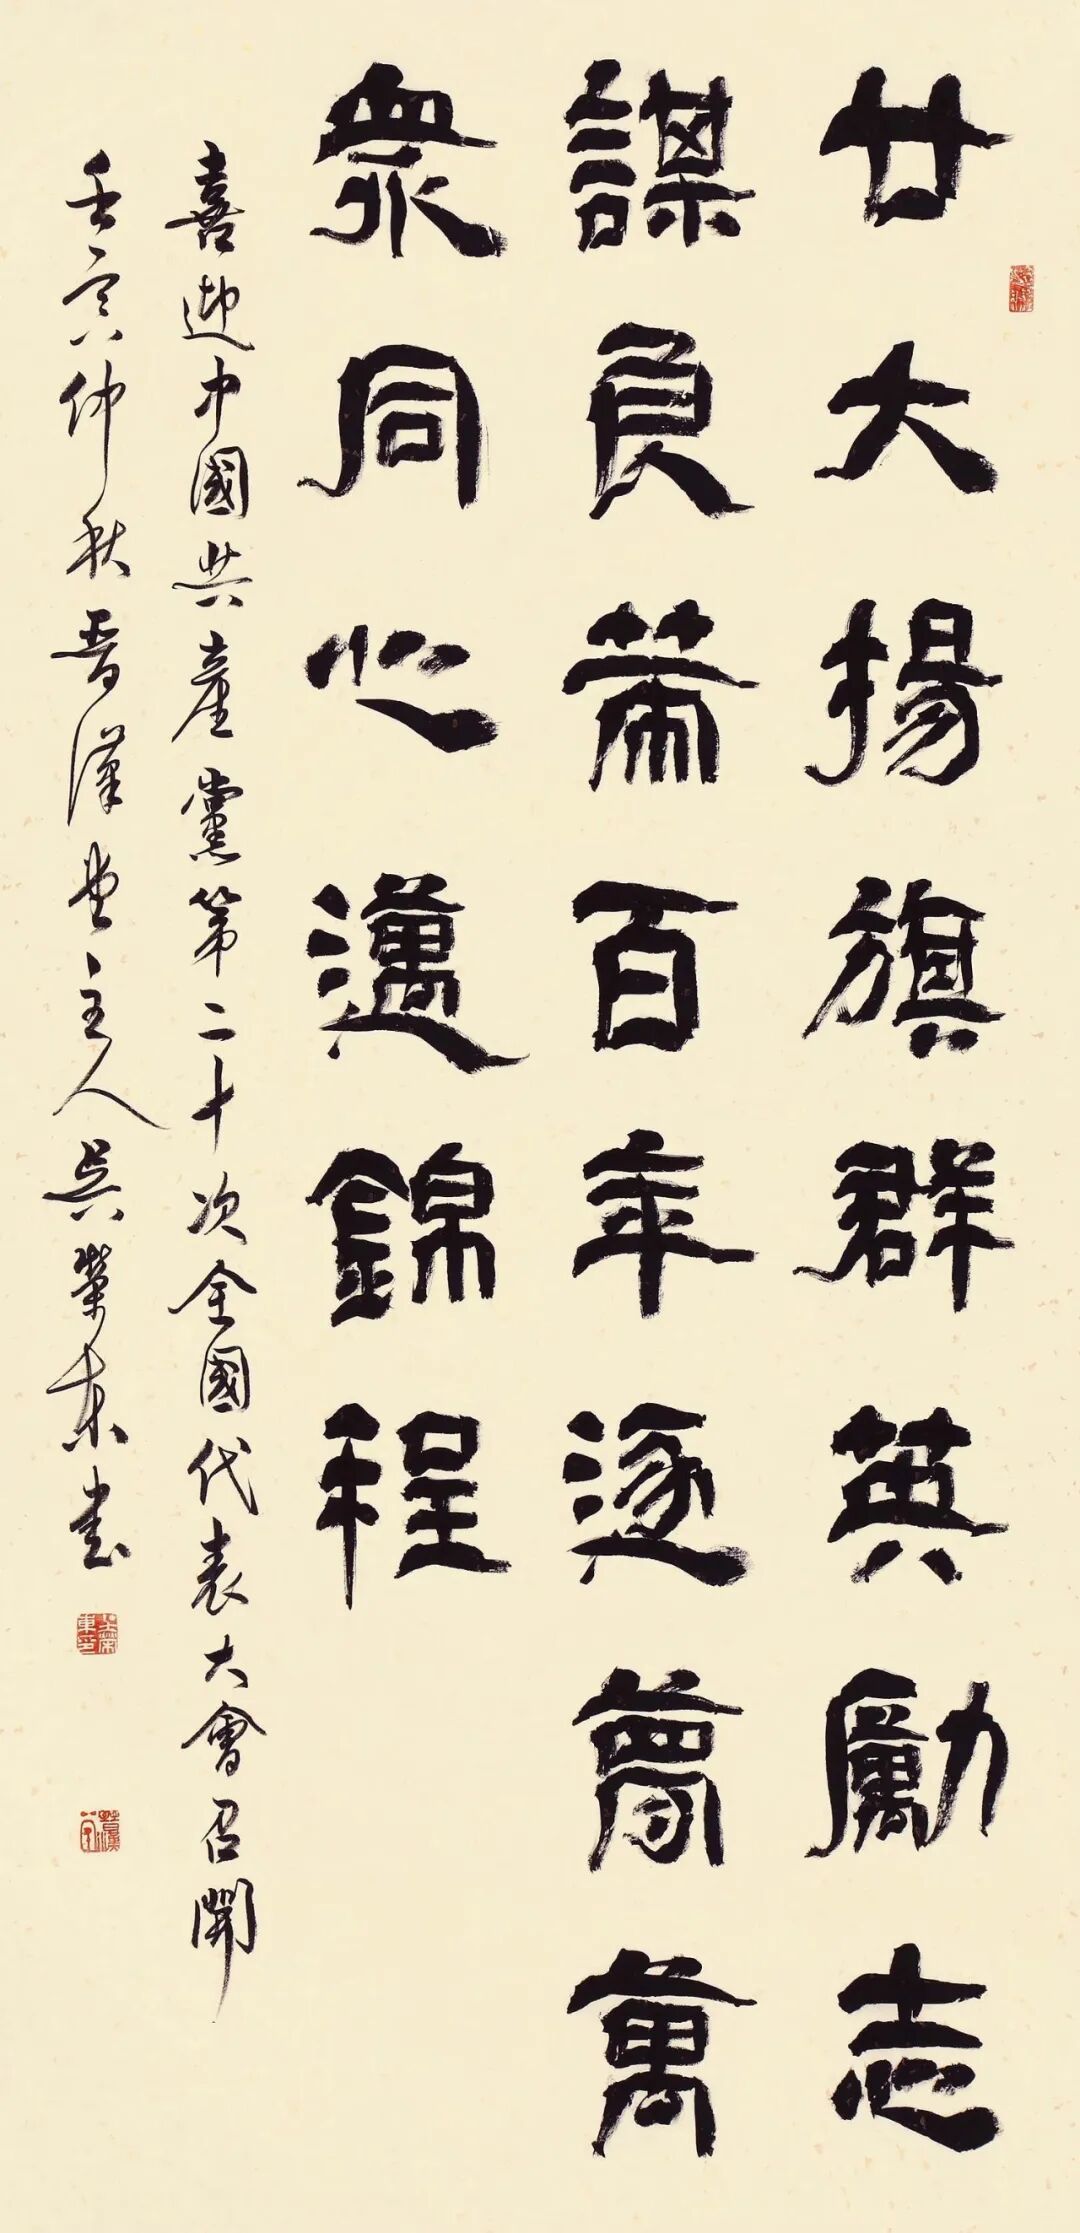 廿大揚旗群英勵志
謀良策百年逐夢萬
衆同心邁錦程
喜迎中國共產黨第二十次全國代表大會召開
壬寅仲秋晋漢堂主人吳榮東書